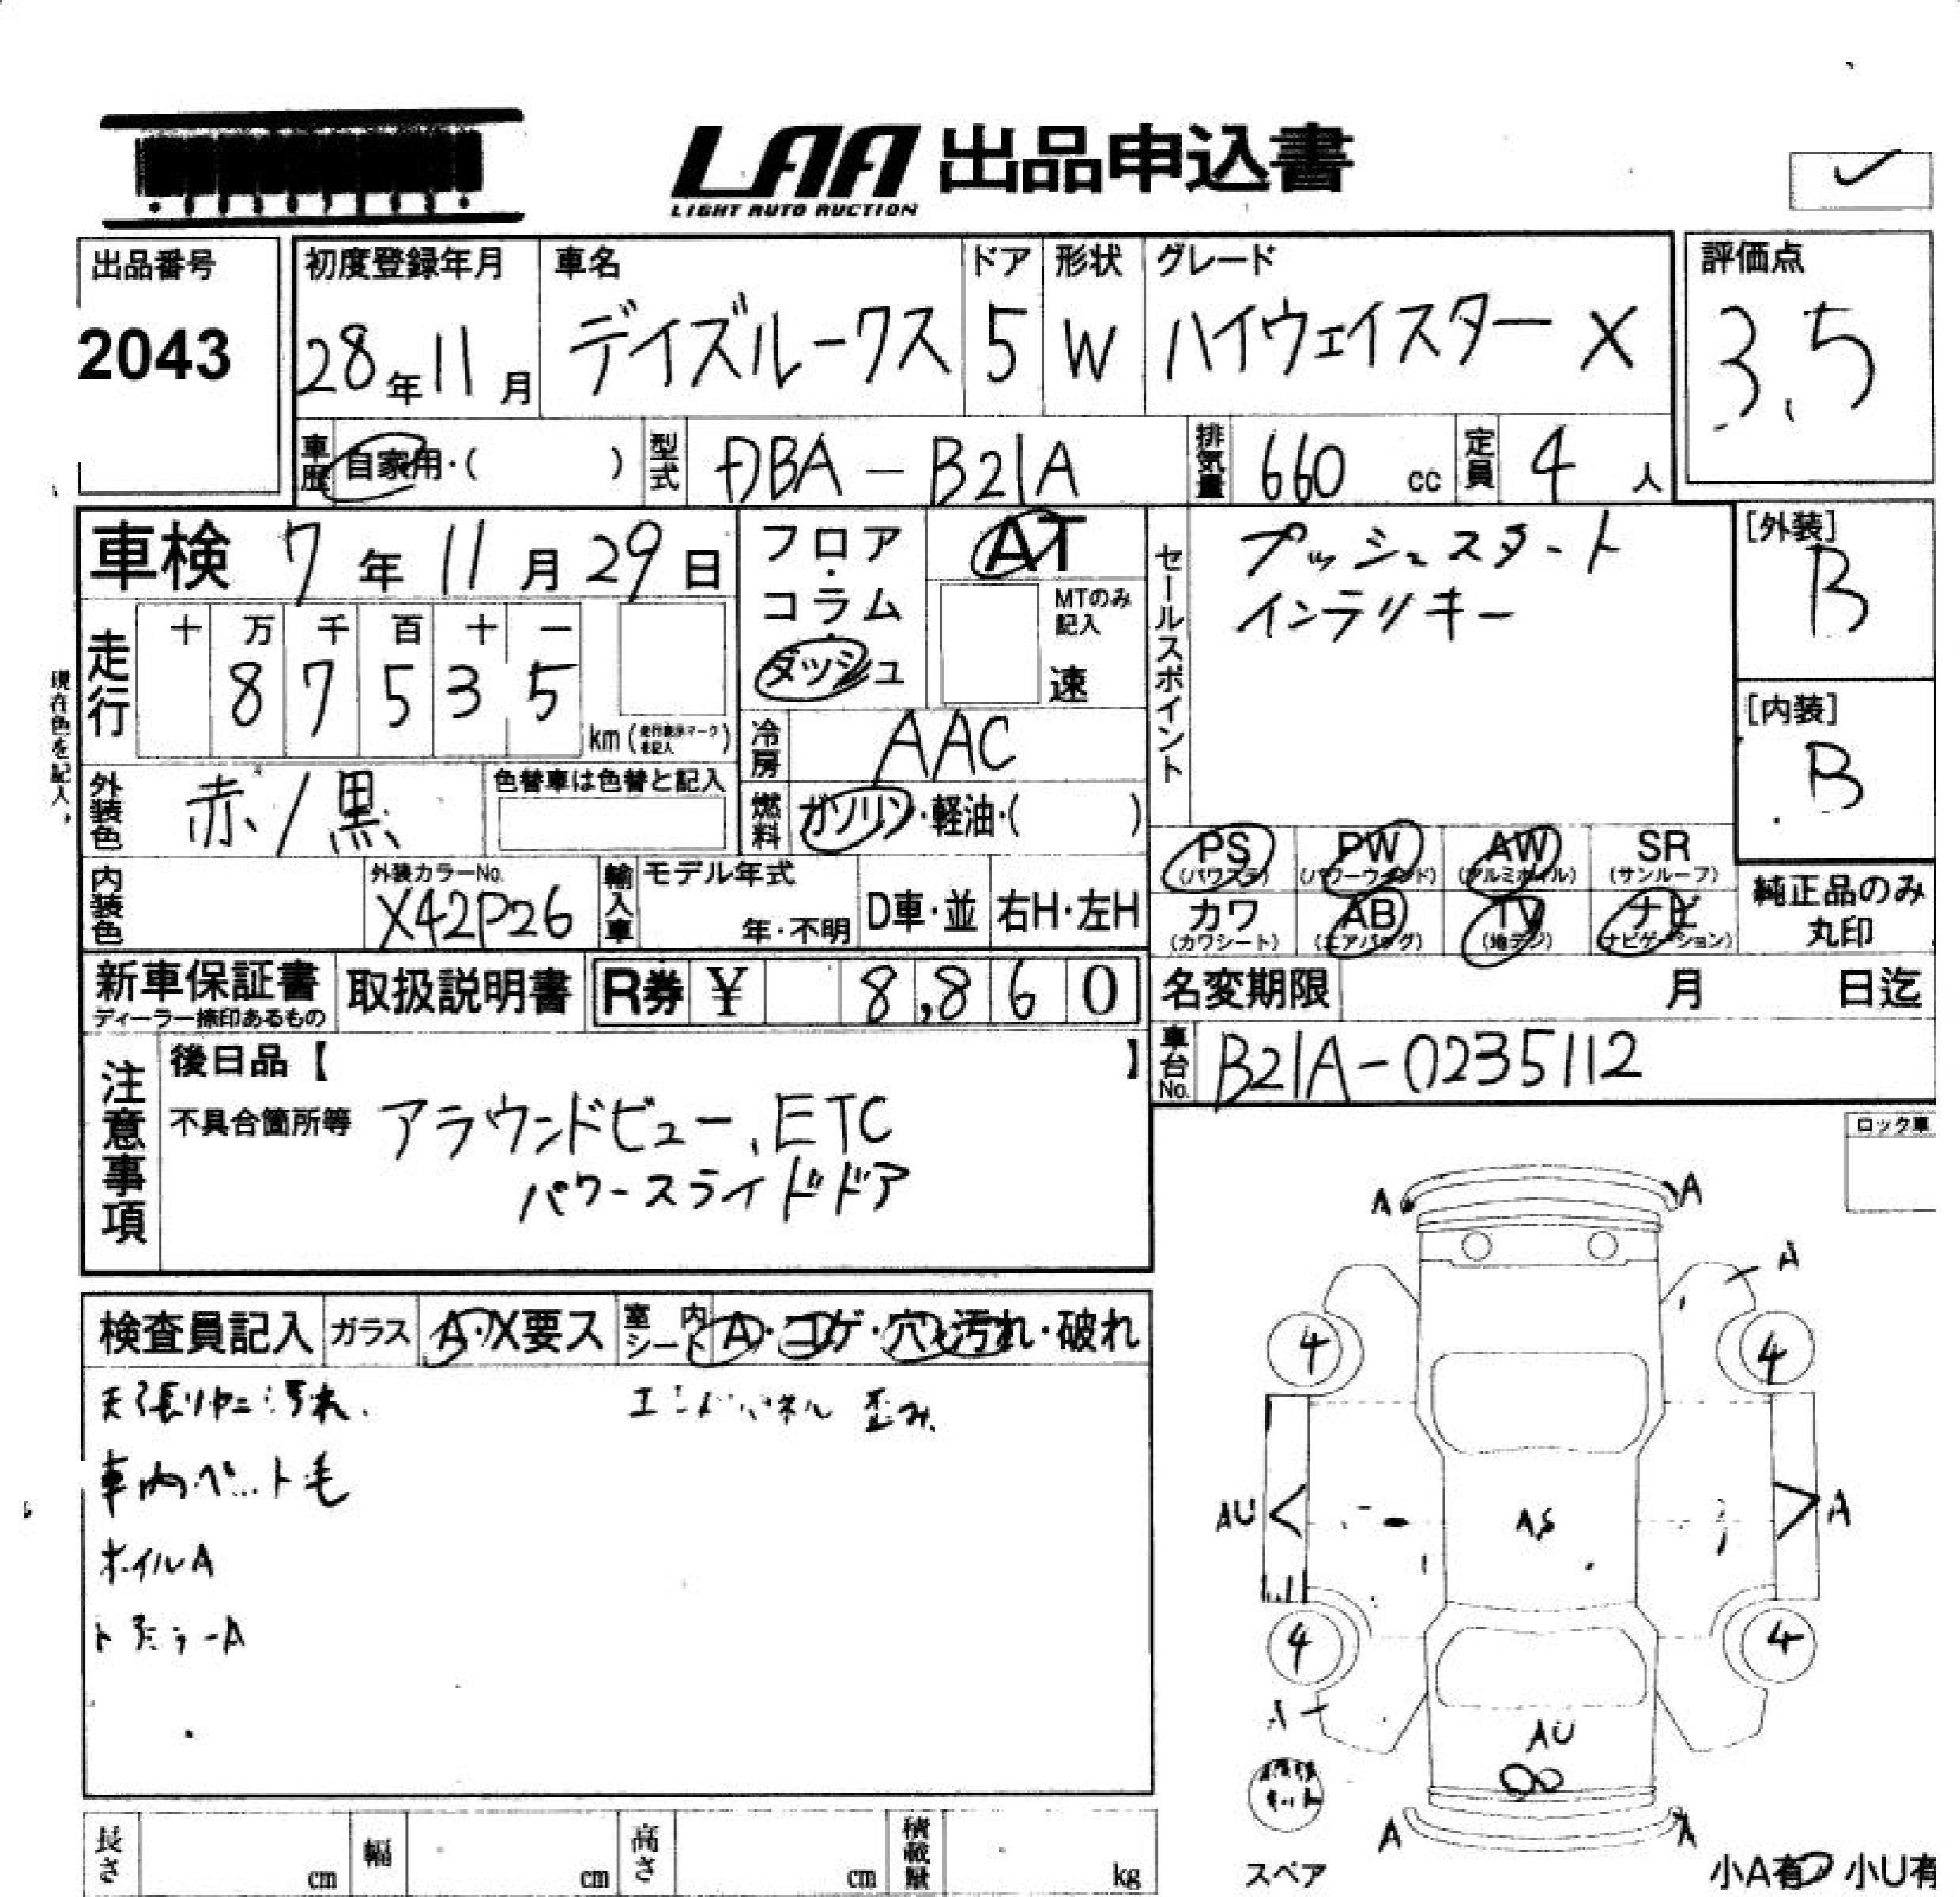 LAA 出品申込書
LIGHT AUTO AUCTION
出品番号
2043
初度登録年月
28年11月
車名
デイズルークス
ドア
5
形状
W
グレード
ハイウェイスター X
評価点
3.5
車歴
自家用・( )
型式
DBA-B21A
排気量
660 cc
定員
4 人
車検 7年11月29日
フロア・コラム・ダッシュ
AT
MTのみ記入
速
セールスポイント
プッシュスタート
インテリキー
[外装]
B
[内装]
B
現在色を記入。
走行
十 万 千 百 十 一
8 7 5 3 5
km (走行表示マークを記入)
冷房
AAC
外装色
赤/黒
色替車は色替と記入
燃料
ガソリン・軽油・( )
PS (パワステ)
PW (パワーウインド)
AW (アルミホイル)
SR (サンルーフ)
カワ (カワシート)
AB (エアバッグ)
TV (地デジ)
ナビ (ナビゲーション)
純正品のみ
丸印
内装色
外装カラーNo.
X42P26
輸入車
モデル年式
年・不明
D車・並
右H・左H
新車保証書
ディーラー捺印あるもの
取扱説明書
R券 ¥ 8,860
名変期限 月 日迄
車台No.
B21A-0235112
注意事項
後日品【 】
不具合箇所等
アラウンドビュー、ETC
パワースライドドア
ロック車
検査員記入
ガラス
A・X要ス
室内シート
A・コゲ・穴・汚れ・破れ
天張り中ニ汚れ.
エンドパネル 歪み.
車内ペット毛
ホイルA
A A
A
4 4
AU A
AS
4 4
A
AU
A A
スペア
小A有 小U有
長さ cm
幅 cm
高さ cm
積載量 kg